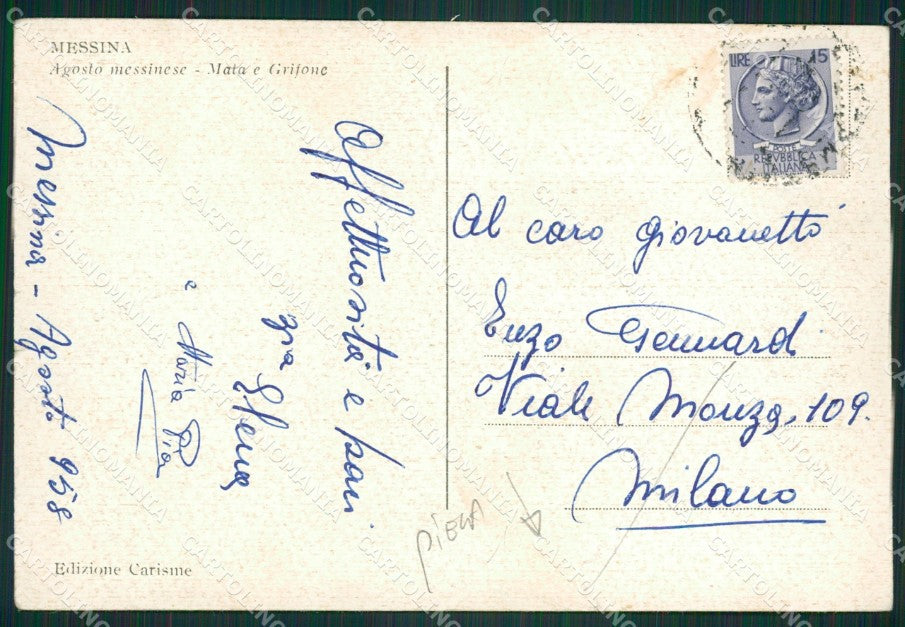 MESSINA
Agosto messinese - Mata e Grifone
Messina - Agosto 958
Affettuosità e baci
zia Elena
e Maria Pia
Edizione Carisme
LIRE 15
POSTE
REPVBBLICA
ITALIANA
Al caro giovanetto
Enzo Gennardi
Viale Monza, 109.
Milano
PIEGA
CARTOLINOMANIA